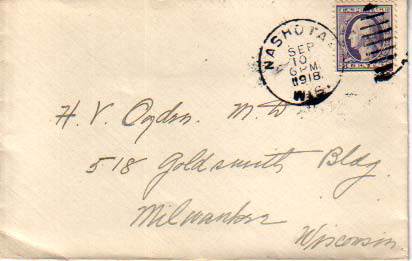 NASHOTA
SEP
10
6 PM
1918
WIS.
H. V. Ogden. M.D
518 Goldsmith Bldg.
Milwaukee
Wisconsin.